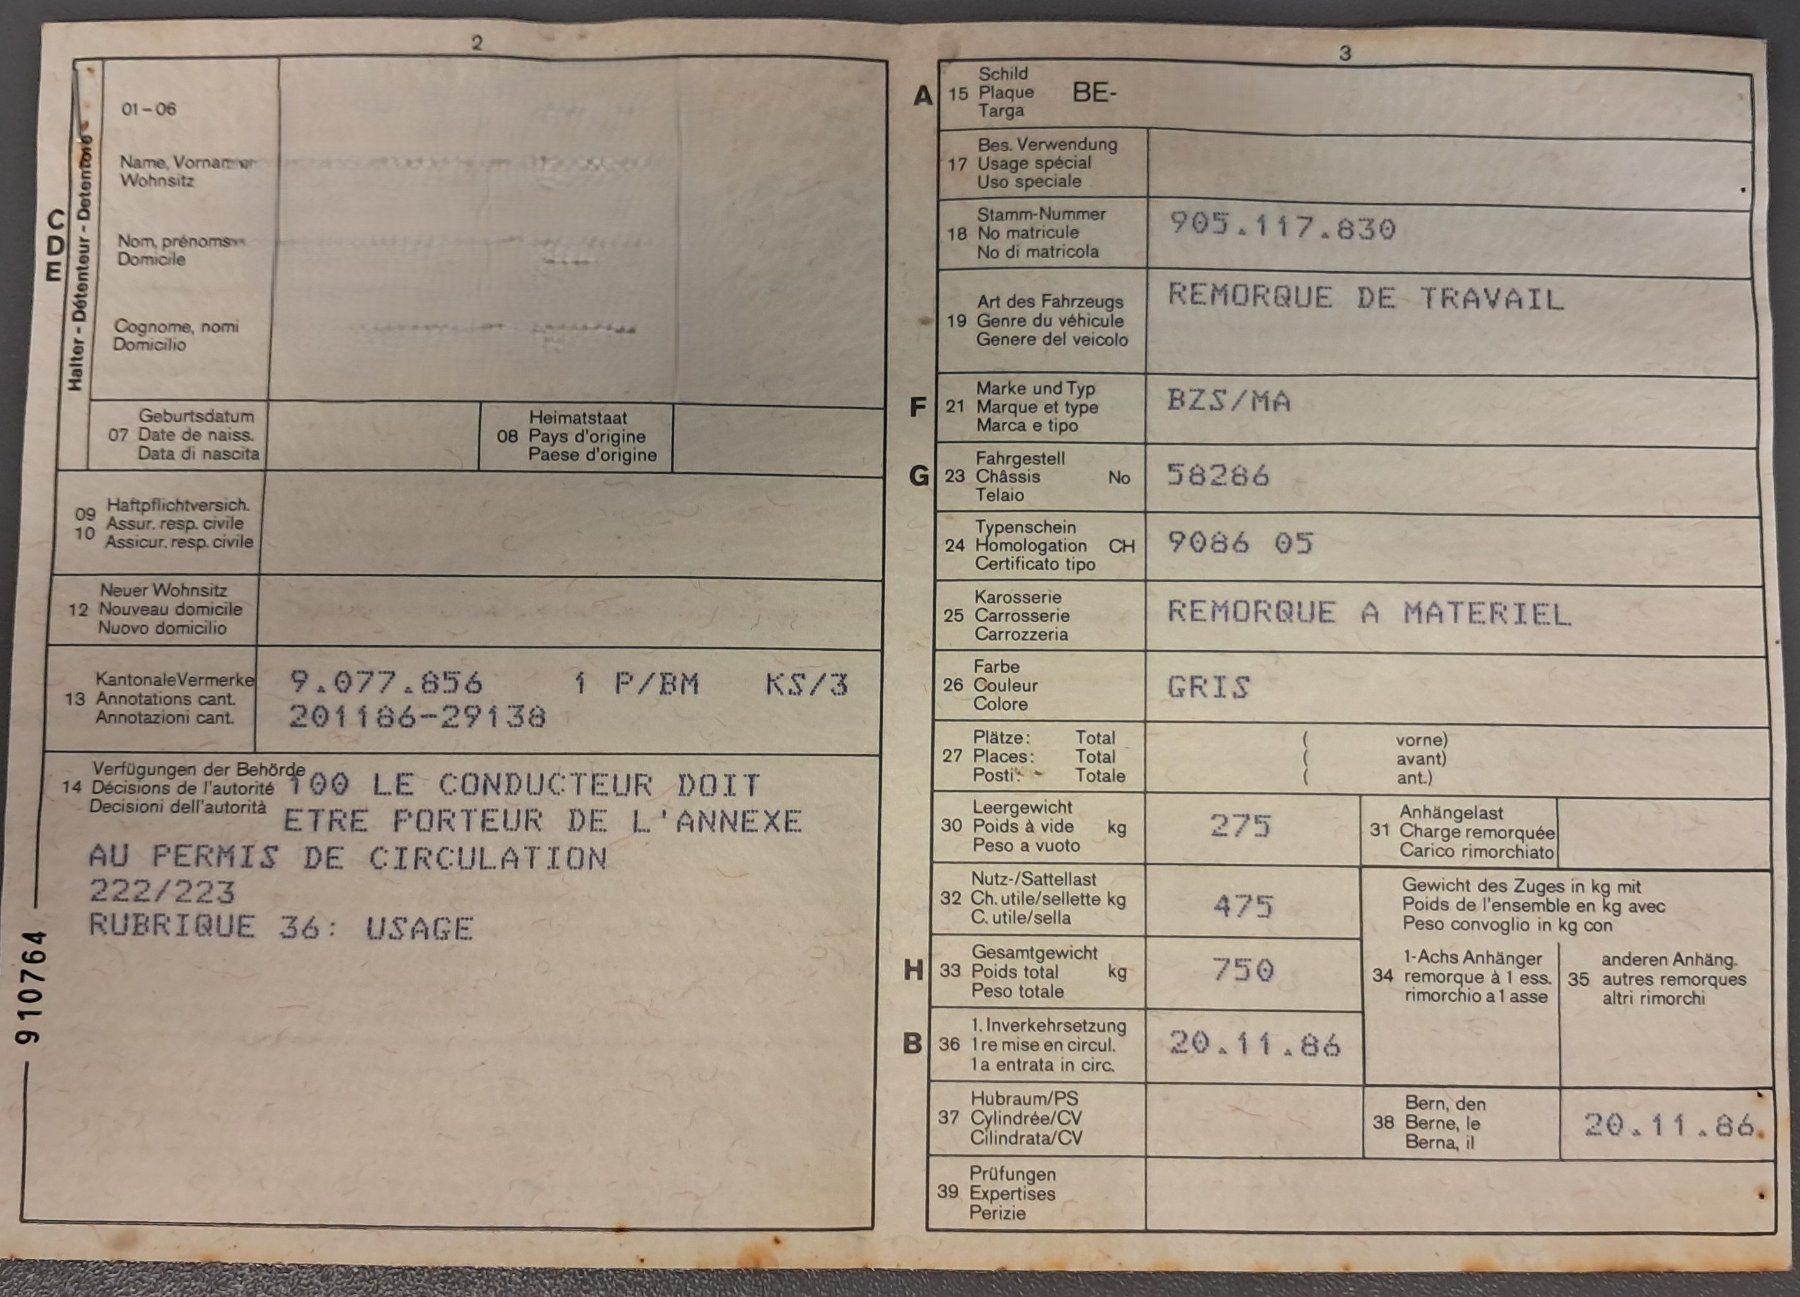 2
01–06
Name, Vorname
Wohnsitz
Nom, prénoms
Domicile
Cognome, nomi
Domicilio
C D E
Halter - Détenteur - Detentore
Geburtsdatum
07 Date de naiss.
Data di nascita
Heimatstaat
08 Pays d'origine
Paese d'origine
09 10
Haftpflichtversich.
Assur. resp. civile
Assicur. resp. civile
Neuer Wohnsitz
12 Nouveau domicile
Nuovo domicilio
Kantonale Vermerke
13 Annotations cant.
Annotazioni cant.
9.077.856 1 P/BM KS/3
201186-29138
Verfügungen der Behörde
14 Décisions de l'autorité
Decisioni dell'autorità
100 LE CONDUCTEUR DOIT
ETRE PORTEUR DE L'ANNEXE
AU PERMIS DE CIRCULATION
222/223
RUBRIQUE 36: USAGE
910764
3
A
Schild
15 Plaque BE-
Targa
Bes. Verwendung
17 Usage spécial
Uso speciale
Stamm-Nummer
18 No matricule
No di matricola
905.117.830
Art des Fahrzeugs
19 Genre du véhicule
Genere del veicolo
REMORQUE DE TRAVAIL
F
Marke und Typ
21 Marque et type
Marca e tipo
BZS/MA
G
Fahrgestell
23 Châssis No
Telaio
58286
Typenschein
24 Homologation CH
Certificato tipo
9086 05
Karosserie
25 Carrosserie
Carrozzeria
REMORQUE A MATERIEL
Farbe
26 Couleur
Colore
GRIS
Plätze: Total ( vorne)
27 Places: Total ( avant)
Posti: Totale ( ant.)
Leergewicht
30 Poids à vide kg
Peso a vuoto
275
Anhängelast
31 Charge remorquée
Carico rimorchiato
Nutz-/Sattellast
32 Ch. utile/sellette kg
C. utile/sella
475
Gewicht des Zuges in kg mit
Poids de l'ensemble en kg avec
Peso convoglio in kg con
H
Gesamtgewicht
33 Poids total kg
Peso totale
750
1-Achs Anhänger
34 remorque à 1 ess.
rimorchio a 1 asse
anderen Anhäng.
35 autres remorques
altri rimorchi
B
1. Inverkehrsetzung
36 1re mise en circul.
1a entrata in circ.
20.11.86
Hubraum/PS
37 Cylindrée/CV
Cilindrata/CV
Bern, den
38 Berne, le
Berna, il
20.11.86
Prüfungen
39 Expertises
Perizie